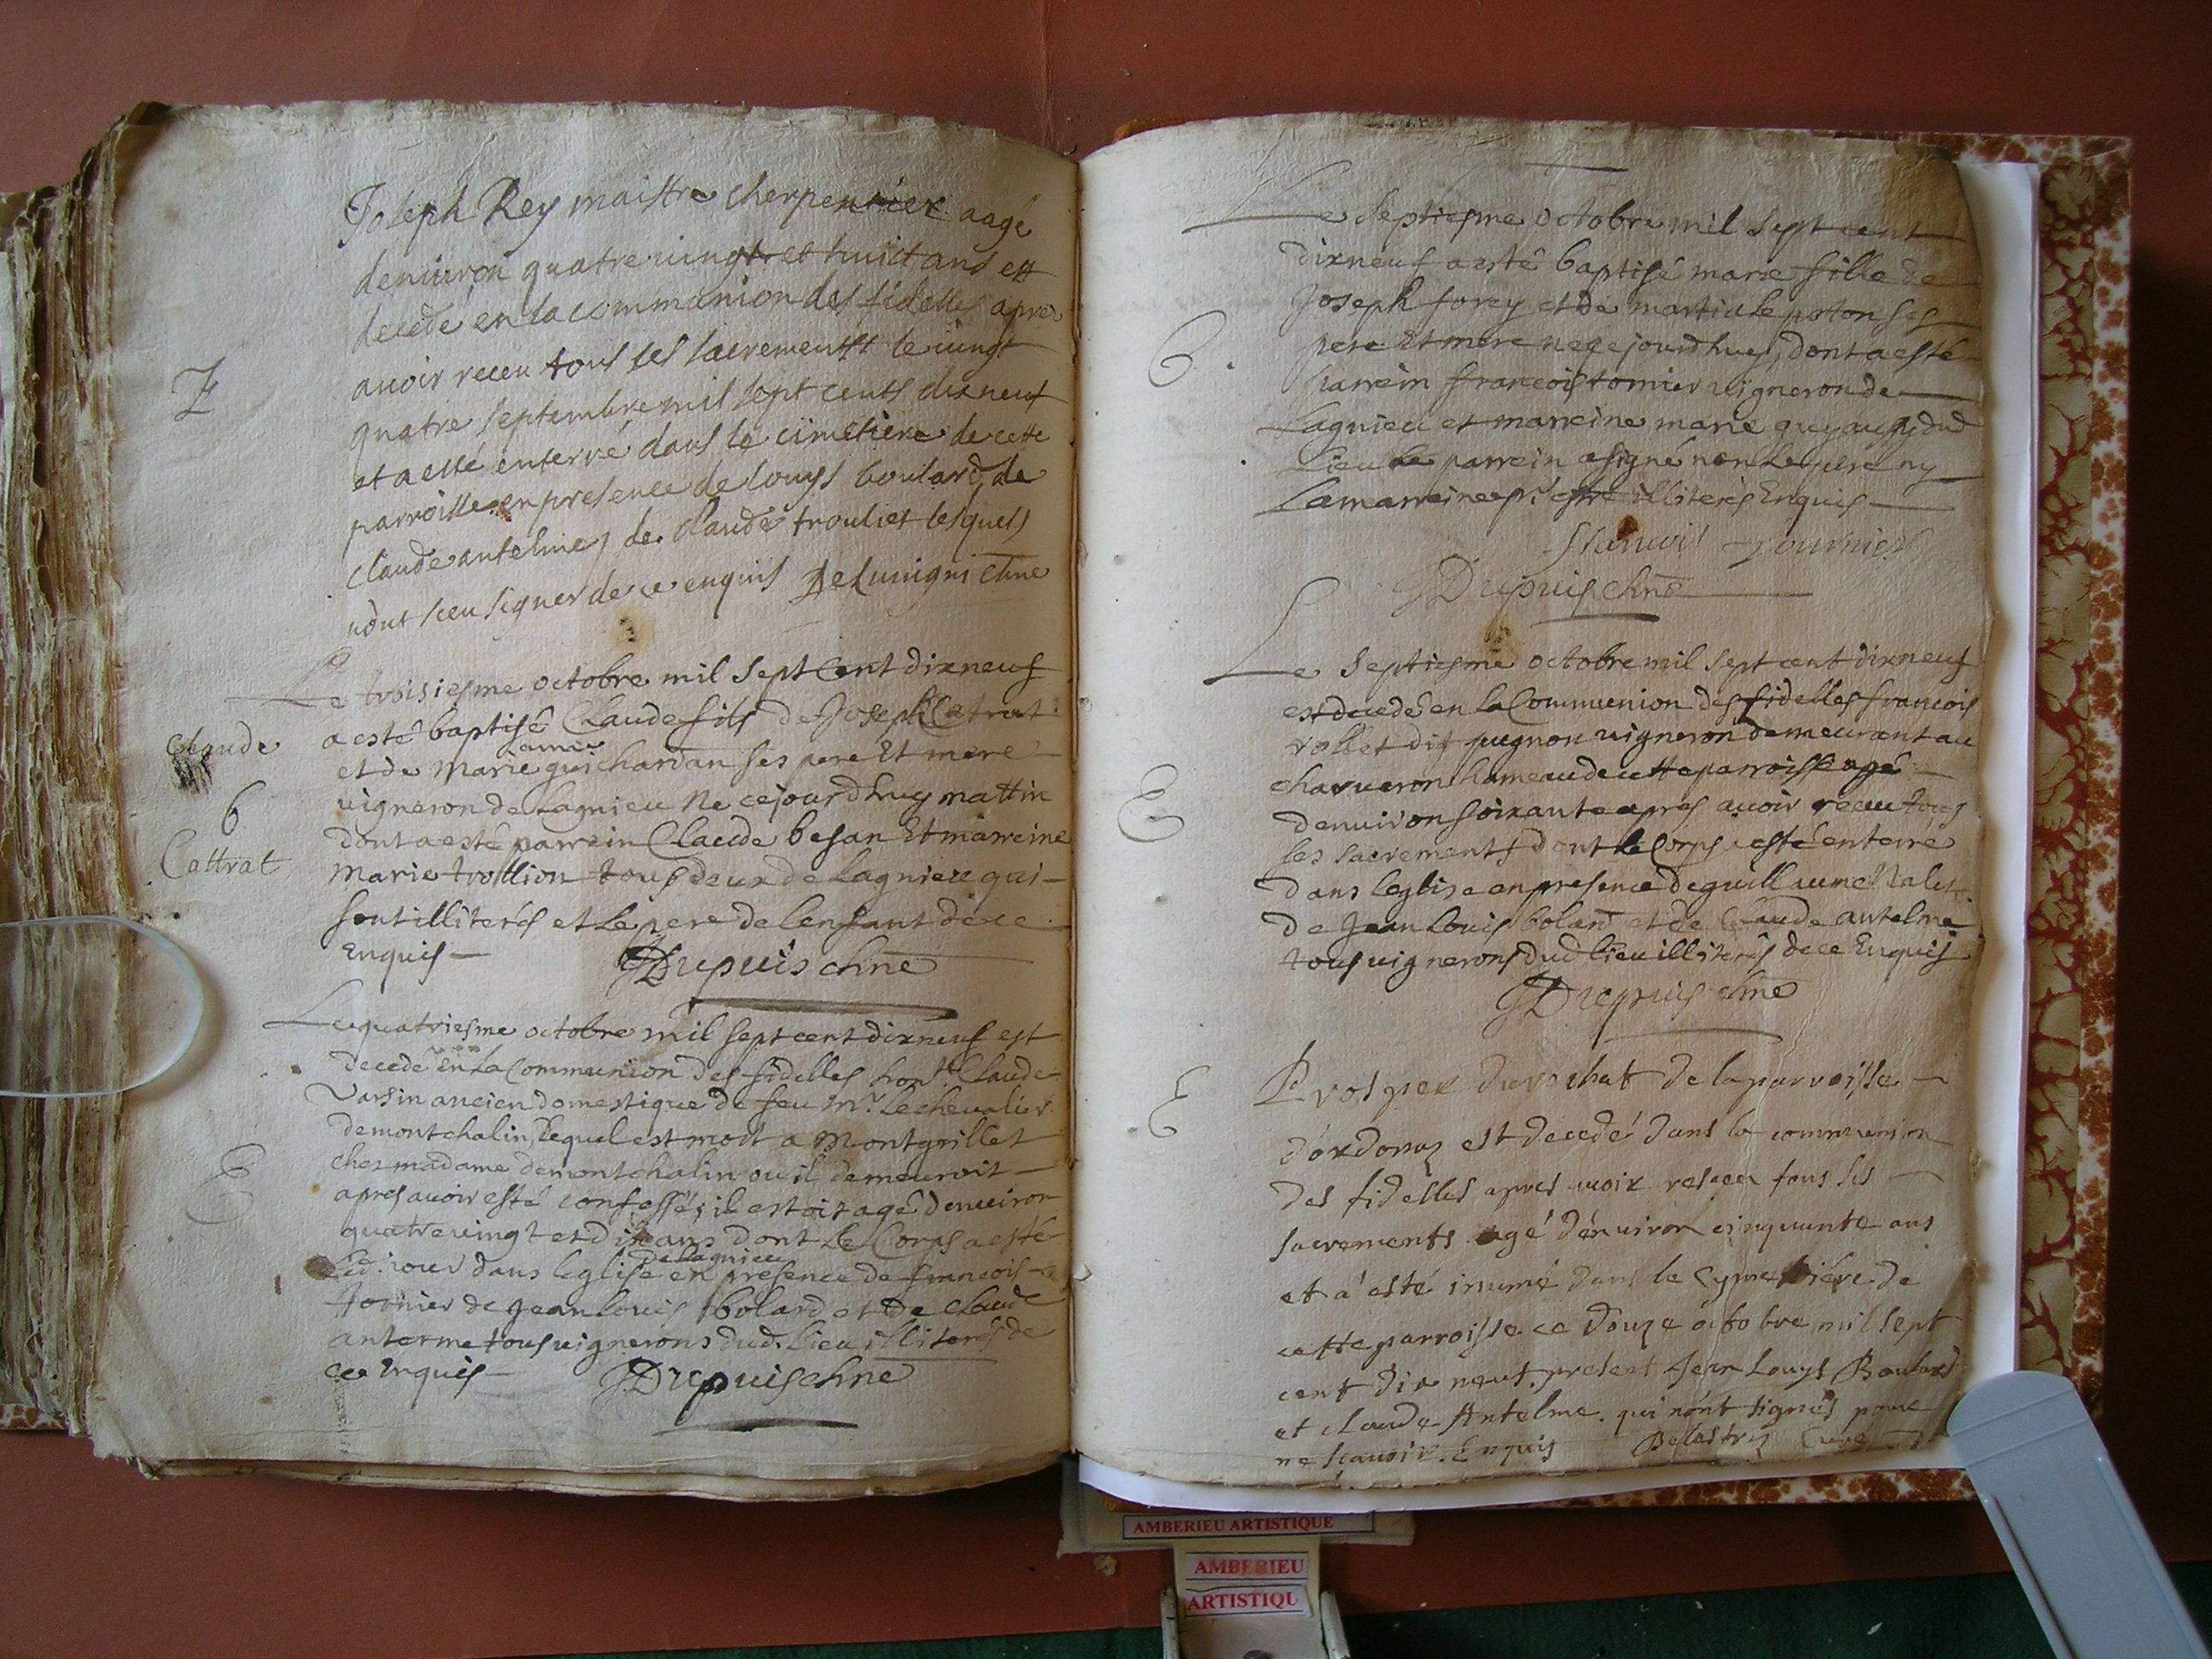 Joseph Rey maistre cherpentier aagé
denuiron quatre uingts et huict ans est
decedé en la communion des fidelles apres
auoir receu tous les sacrements le uingt
quatre septembre mil sept cents dixneuf
et a esté enterré dans le cimetiere de cette
parroisse en presence de louys boulard, de
claude antelme, de claude trouliet lesquels
nont sceu signer de ce enquis Delunigni chne
E
Le troisiesme octobre mil sept Cent dixneuf
a esté baptisé Claude fils de Joseph Catrat
et de Marie guichardan ses pere Et mere
uigneron de Lagnieu Ne cejourdhuy mattin
dont a esté parrein Claude besan Et marreine
marie trollion tous deux de Lagnieu qui
sont illiterés et le pere de lenfant de ce
Enquis Dupuis chne
Claude
6
Cattrat
Le quatriesme octobre mil sept cent dixneuf est
decedé en la Communion des fidelles hont Claude
Varsin ancien domestique de feu mr le cheualier
de montchalin, Lequel est mort a Montgrillet
chez madame de montchalin ou il demeuroit
apres auoir esté confessé, il estoit agé denuiron
quatre uingt et dix ans dont le Corps a esté
jour dans leglise de lagnieu en presence de francois
tornier de Jean Louis bolard et de Claude
anterme tous uignerons dud. lieu illiterés de
ce Enquis Dupuis chne
E
Le septiesme octobre mil sept cent
dixneuf a esté baptisé marie fille de
Joseph forey et de ses
pere Et mere nee cejourdhuy, dont a esté
parrein francois tornier uigneron de
Lagnieu et marreine marie dud
Lieu le parrein a signé non le pere ny
la marreine pr estre illiterés Enquis
francois tournier
Dupuis chne
6
Le septiesme octobre mil sept cent dixneuf
est decedé en la Communion des fidelles francois
rollet dit pugnon uigneron demeurant au
charueron hameau de cette parroisse agé
denuiron soixante apres auoir receu tous
ses sacrements dont le Corps a esté enterré
dans leglise en presence de guillaume Nalet
de Jean Louis bolard et de Claude antelme
tous uignerons dud lieu illiterés de ce Enquis
Dupuis chne
E
Prosper Durochat de la parroisse
dordonas est decedé dans la communion
des fidelles apres auoir receu tous les
sacrements agé denuiron cinquante ans
et a esté inumé dans le Cymetiére de
cette parroisse ce douze octobre mil sept
cent dix neuf. present Jean Louys Boulard
et claude Antelme. qui n'ont signés pour
ne scauoir. Enquis Curé
E
AMBERIEU ARTISTIQUE
AMBERIEU
ARTISTIQU